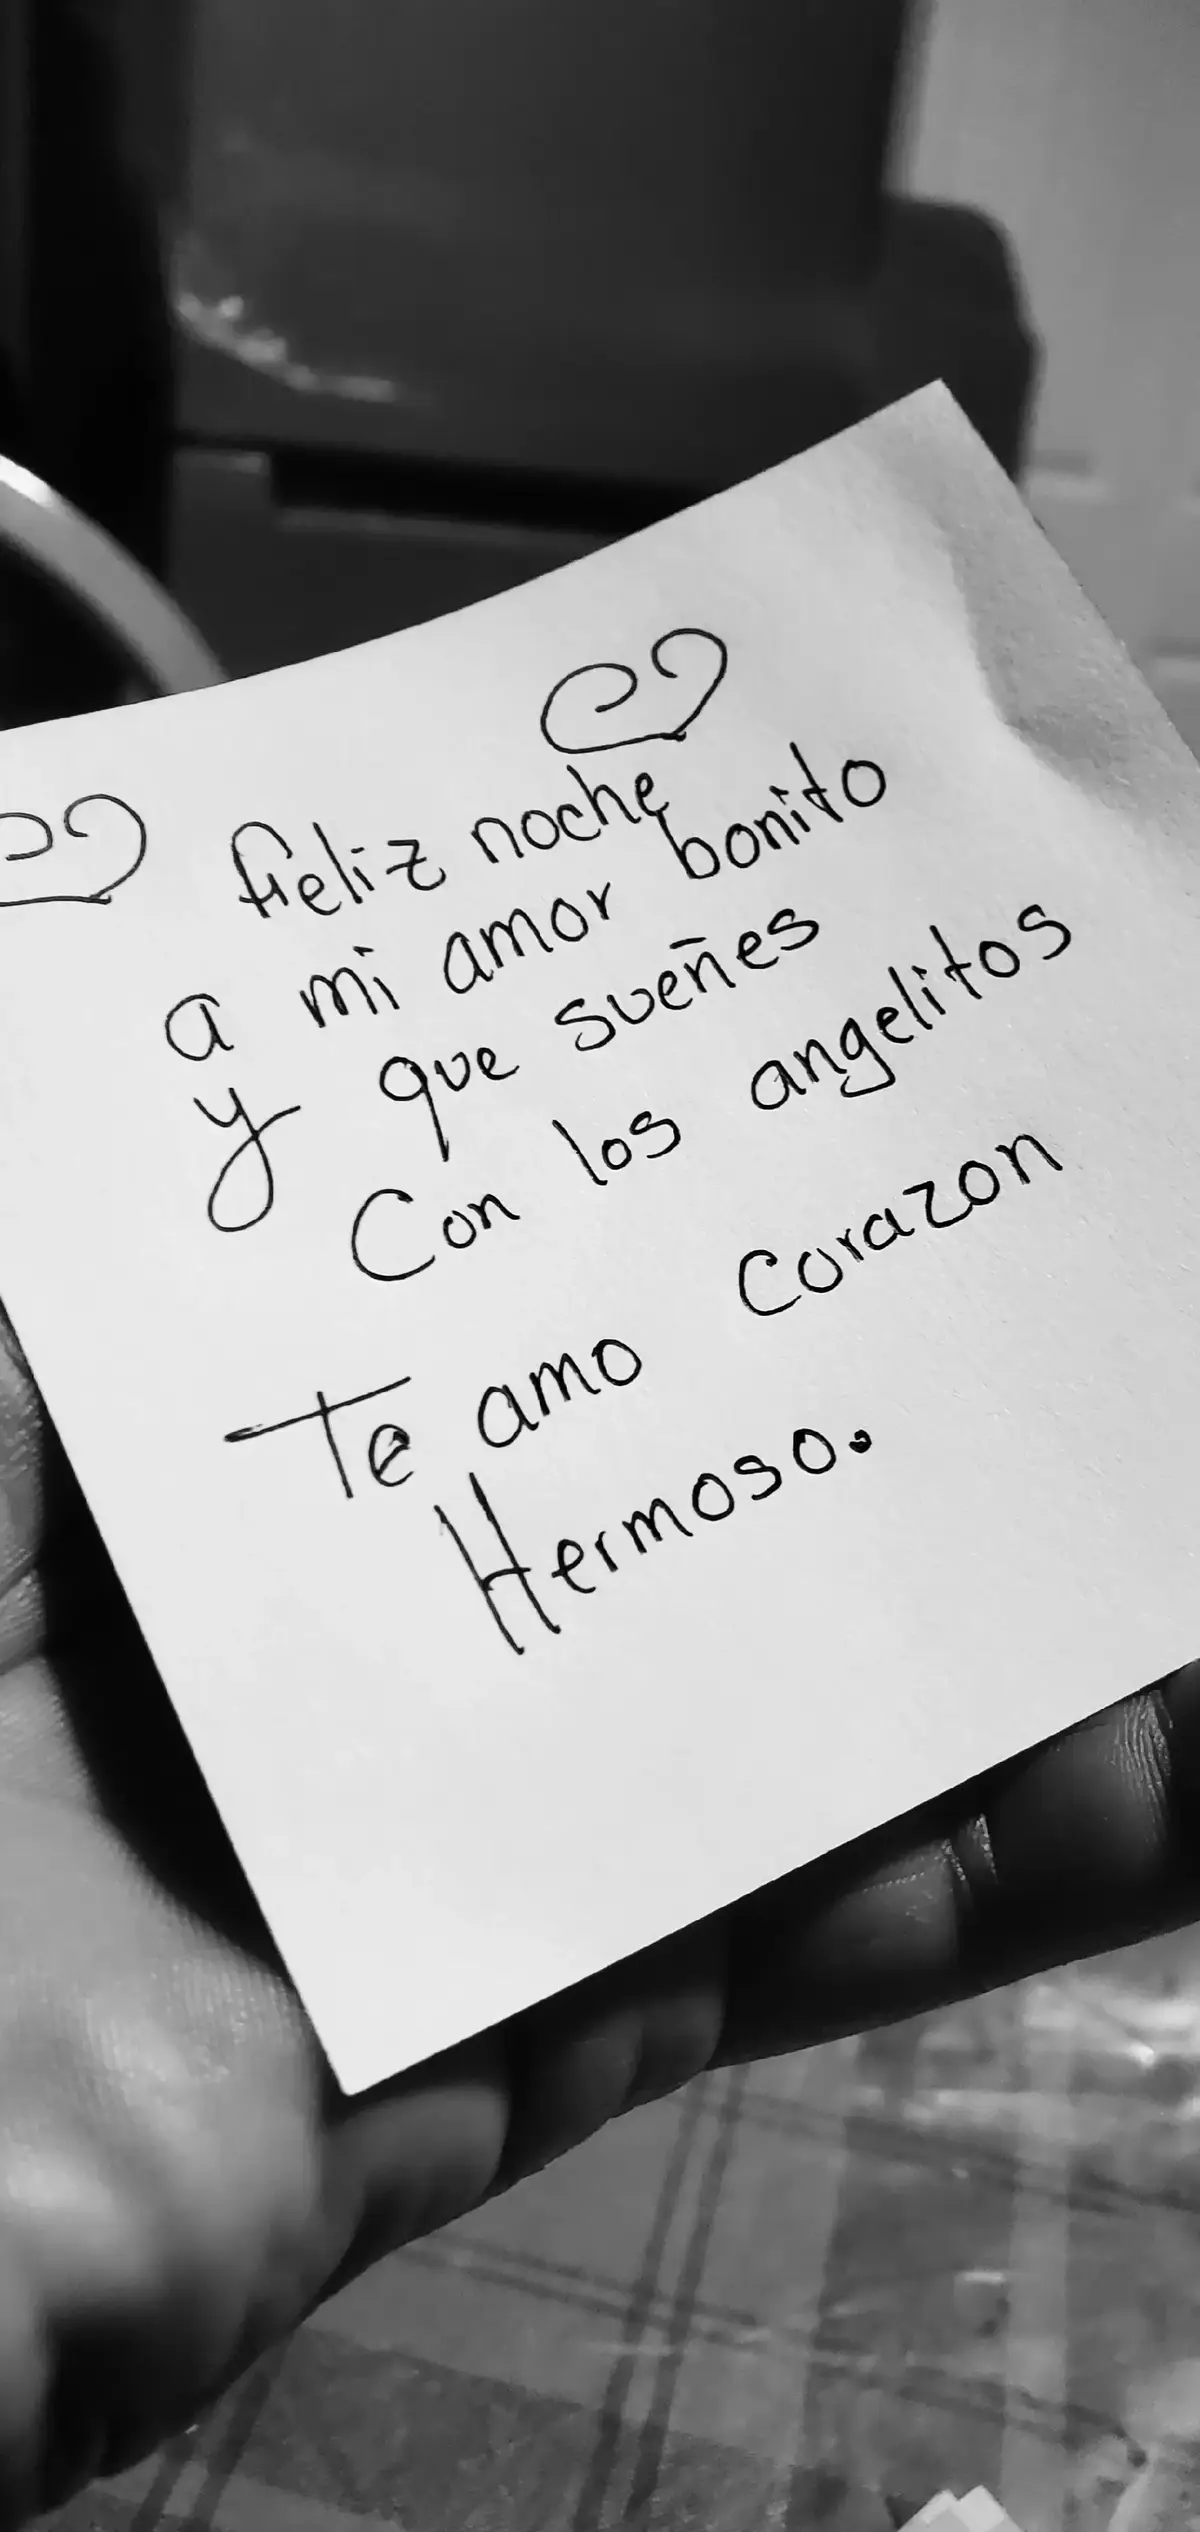 Feliz noche
a mi amor bonito
y que sueñes
Con los angelitos
Te amo Corazon
Hermoso.